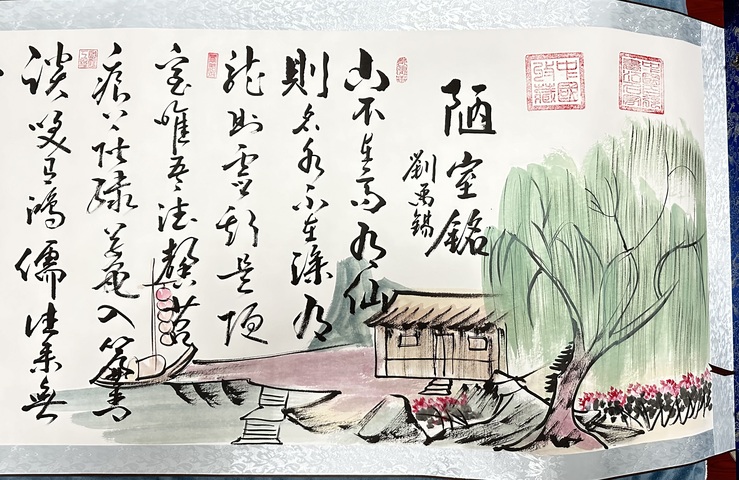 陋室銘
劉禹錫
山不在高有仙
則名水不在深有
龍則靈斯是陋
室唯吾德馨苔
痕上階綠草色入簾青
談笑有鴻儒往來無
中國收藏